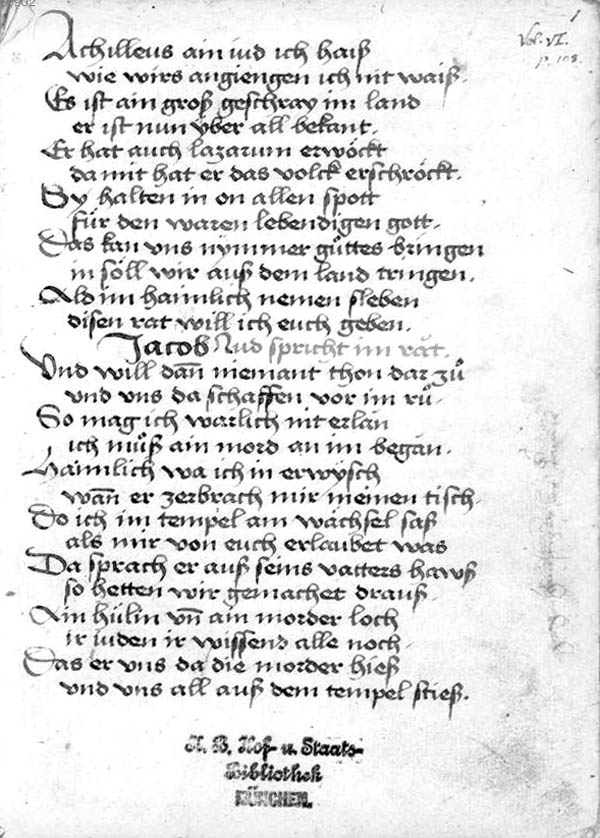 1
Vol. VI.
p. 108.
Achilleus ain iud ich haiß
wie wirs angiengen ich nit waiß.
Es ist ain groß geschray im land
er ist nun ÿber all bekant.
Er hat auch lazarum erwöckt
da mit hat er das volck erschröckt.
Sy halten in on allen spott
für den waren lebendigen gott.
Das kan vns nymmer gůttes bringen
in söll wir auß dem land tringen.
Ald im haimlich nemen sleben
disen rat will ich euch geben.
Jacob Iud spricht im rat.
Vnd will dañ niemant thon dar zů
vnd vns da schaffen vor im rů.
So mag ich warlich nit erlan
ich můß ain mord an im began.
Haimlich wa ich in erwÿsch
wañ er zerbrach mir meinen tisch.
Do ich im tempel am wächsel saß
als mir von euch erlaubet was
Da sprach er auß seins vatters hawß
so hetten wir gemachet drauß.
Ain hülin vñ ain morder loch
ir iuden ir wissend alle noch.
Das er vns da die morder hieß
vnd vns all auß dem tempel stieß.
K. B. Hof- u. Staats-
Bibliothek
MÜNCHEN.